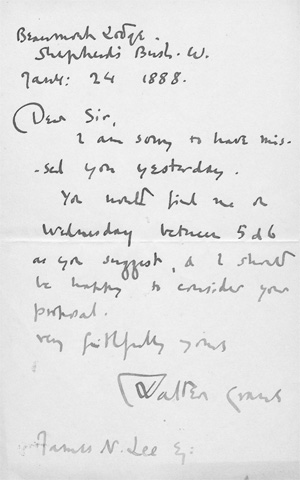 Beaumont Lodge.
Shepherd's Bush. W.
Jany: 24 1888.
Dear Sir,
I am sorry to have mis-
-sed you yesterday.
You would find me on
Wednesday between 5 & 6
as you suggest, & I should
be happy to consider your
proposal.
very faithfully yours
Walter Crane
James N. Lee Eq: